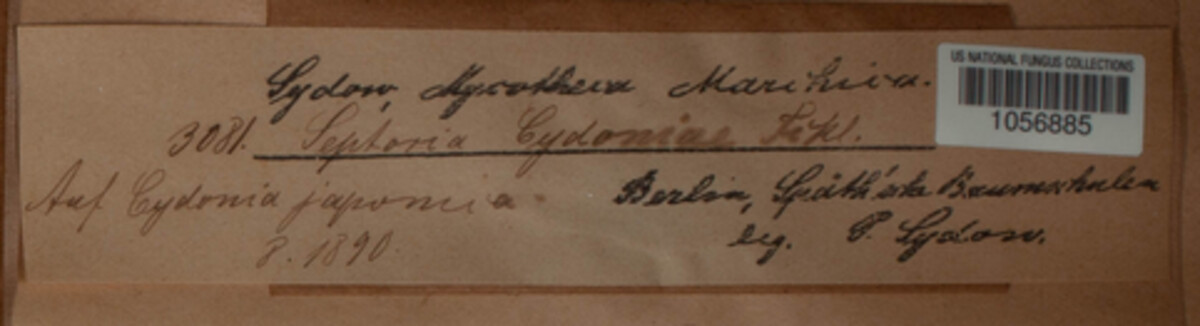 Sydow, Mycotheca Marchica.
US NATIONAL FUNGUS COLLECTIONS
1056885
3081. Septoria Cydoniae Fckl.
Auf Cydonia japonica.
Berlin, Späth'sche Baumschulen
8. 1890.
leg. P. Sydow.